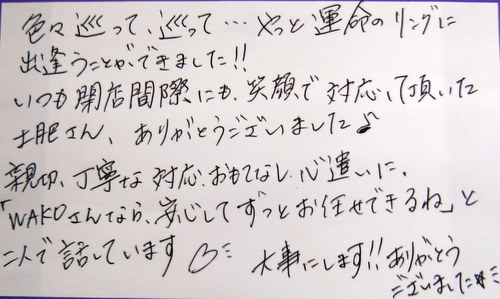 色々巡って、巡って…やっと運命のリングに
出逢うことができました!!
いつも閉店間際にも、笑顔で対応して頂いた
土肥さん、ありがとうございました♪
親切、丁寧な対応、おもてなし、心遣いに、
「WAKOさんなら、安心してずっとお任せできるね」と
二人で話しています♡
大事にします!!ありがとう
ございました☆